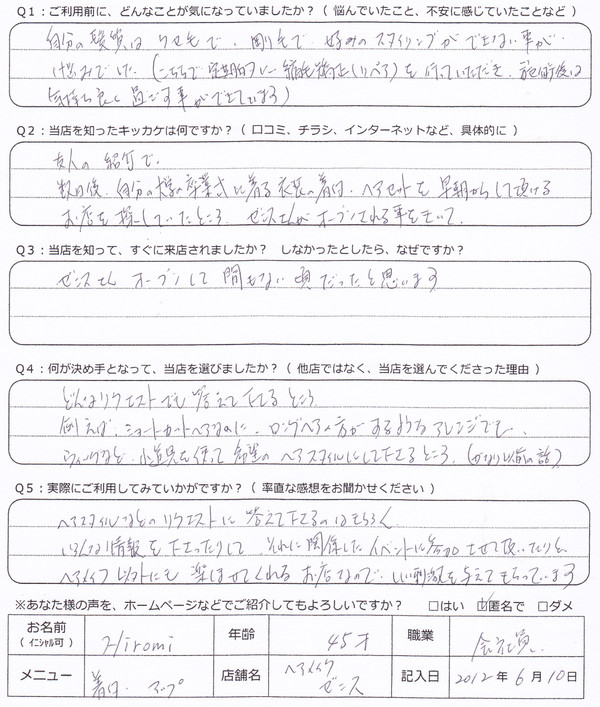 Q1：ご利用前に、どんなことが気になっていましたか？（ 悩んでいたこと、不安に感じていたことなど ）
自分の髪質はクセ毛で、剛毛で、好みのスタイリングができない事が
悩みでした。（こちらで定期的に縮毛矯正（リペア）を行っていただき、施術後は
気持ち良く過ごす事ができています）
Q2：当店を知ったキッカケは何ですか？（ 口コミ、チラシ、インターネットなど、具体的に ）
友人の紹介で。
数日後、自分の大学の卒業式に着る衣装の着付、ヘアセットを早朝からして頂ける
お店を探していたところ、ゼンスさんがオープンされる事をきいて。
Q3：当店を知って、すぐに来店されましたか？　しなかったとしたら、なぜですか？
ゼンスさん オープンして間もない頃だったと思います
Q4：何が決め手となって、当店を選びましたか？（ 他店ではなく、当店を選んでくださった理由 ）
どんなリクエストでも答えて下さるところ
例えば、ショートカットヘアなのに、ロングヘアの方がするようなアレンジでも、
ウィッグなど、小道具を使って希望のヘアスタイルにして下さるところ。（かなり以前の話）
Q5：実際にご利用してみていかがですか？（ 率直な感想をお聞かせください ）
ヘアスタイルなどのリクエストに答えて下さるのはもちろん
いろんな情報を下さったりして、それに関係したイベントに参加させて頂いたりと、
ヘアメイク以外にも楽しませてくれるお店なので、いい刺激を与えてもらっています
※あなた様の声を、ホームページなどでご紹介してもよろしいですか？　□はい　☑匿名で　□ダメ
お名前（イニシャル可）　Hiromi　年齢　45才　職業　会社員
メニュー　着付、アップ　店舗名　ヘアメイク ゼンス　記入日　2012年 6月 10日